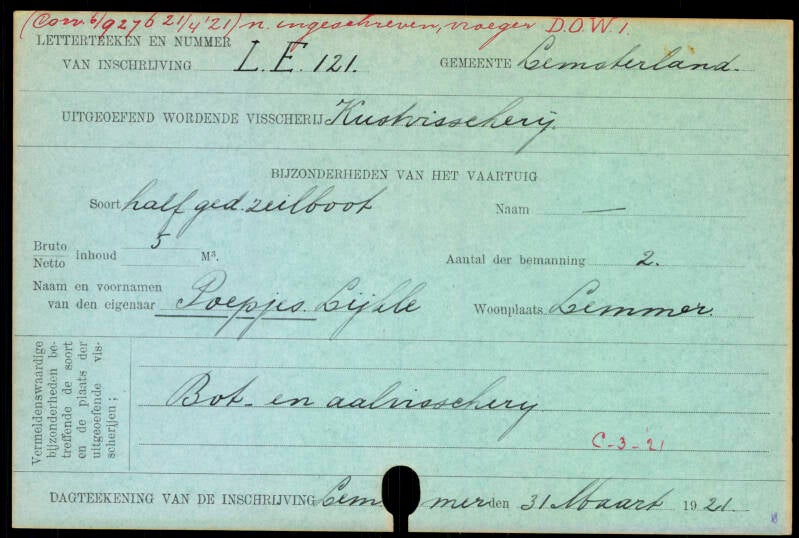 (Corr. 6/927 b 21/4 '21) n. ingeschreven, vroeger D.O.W. 1.
LETTERTEEKEN EN NUMMER
VAN INSCHRIJVING L.E. 121. GEMEENTE Lemsterland.
UITGEOEFEND WORDENDE VISSCHERIJ Kustvisscherij.
BIJZONDERHEDEN VAN HET VAARTUIG
Soort half ged. zeilboot Naam —
Bruto 5
Netto inhoud M³. Aantal der bemanning 2.
Naam en voornamen
van den eigenaar Poepjes. Lijkle Woonplaats Lemmer.
Vermeldenswaardige
bijzonderheden be-
treffende de soort
en de plaats der
uitgeoefende vis-
scherijen;
Bot- en aalvisscherij
C-3-21
DAGTEEKENING VAN DE INSCHRIJVING Lemmer den 31 Maart 1921.